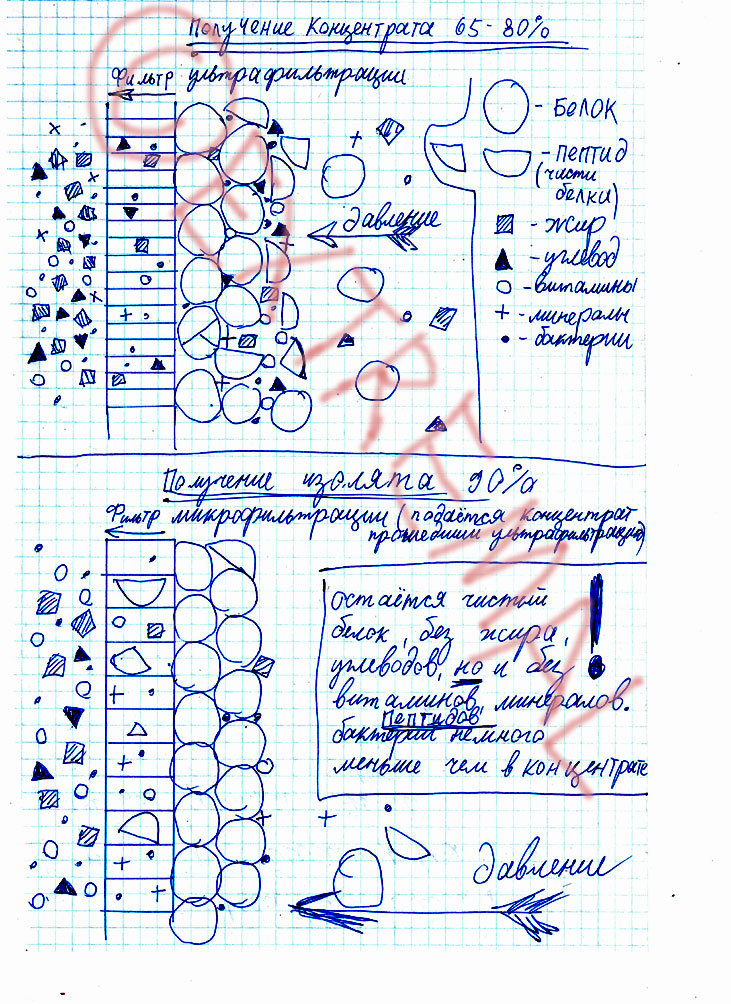 Получение концентрата 65-80%
Фильтр ультрафильтрации
- БЕЛОК
- пептид
(чисти
белки)
Давление
- жир
- углевод
- витамины
- минералы
- бактерии
Получение изолята 90%
Фильтр микрофильтрации (подаётся концентрат
прошедший ультрафильтрацию)
остаётся чистый
белок, без жира,
углеводов, но и без
витаминов, минералов.
Пептидов
бактерий немного
меньше чем в концентрате
!
Давление